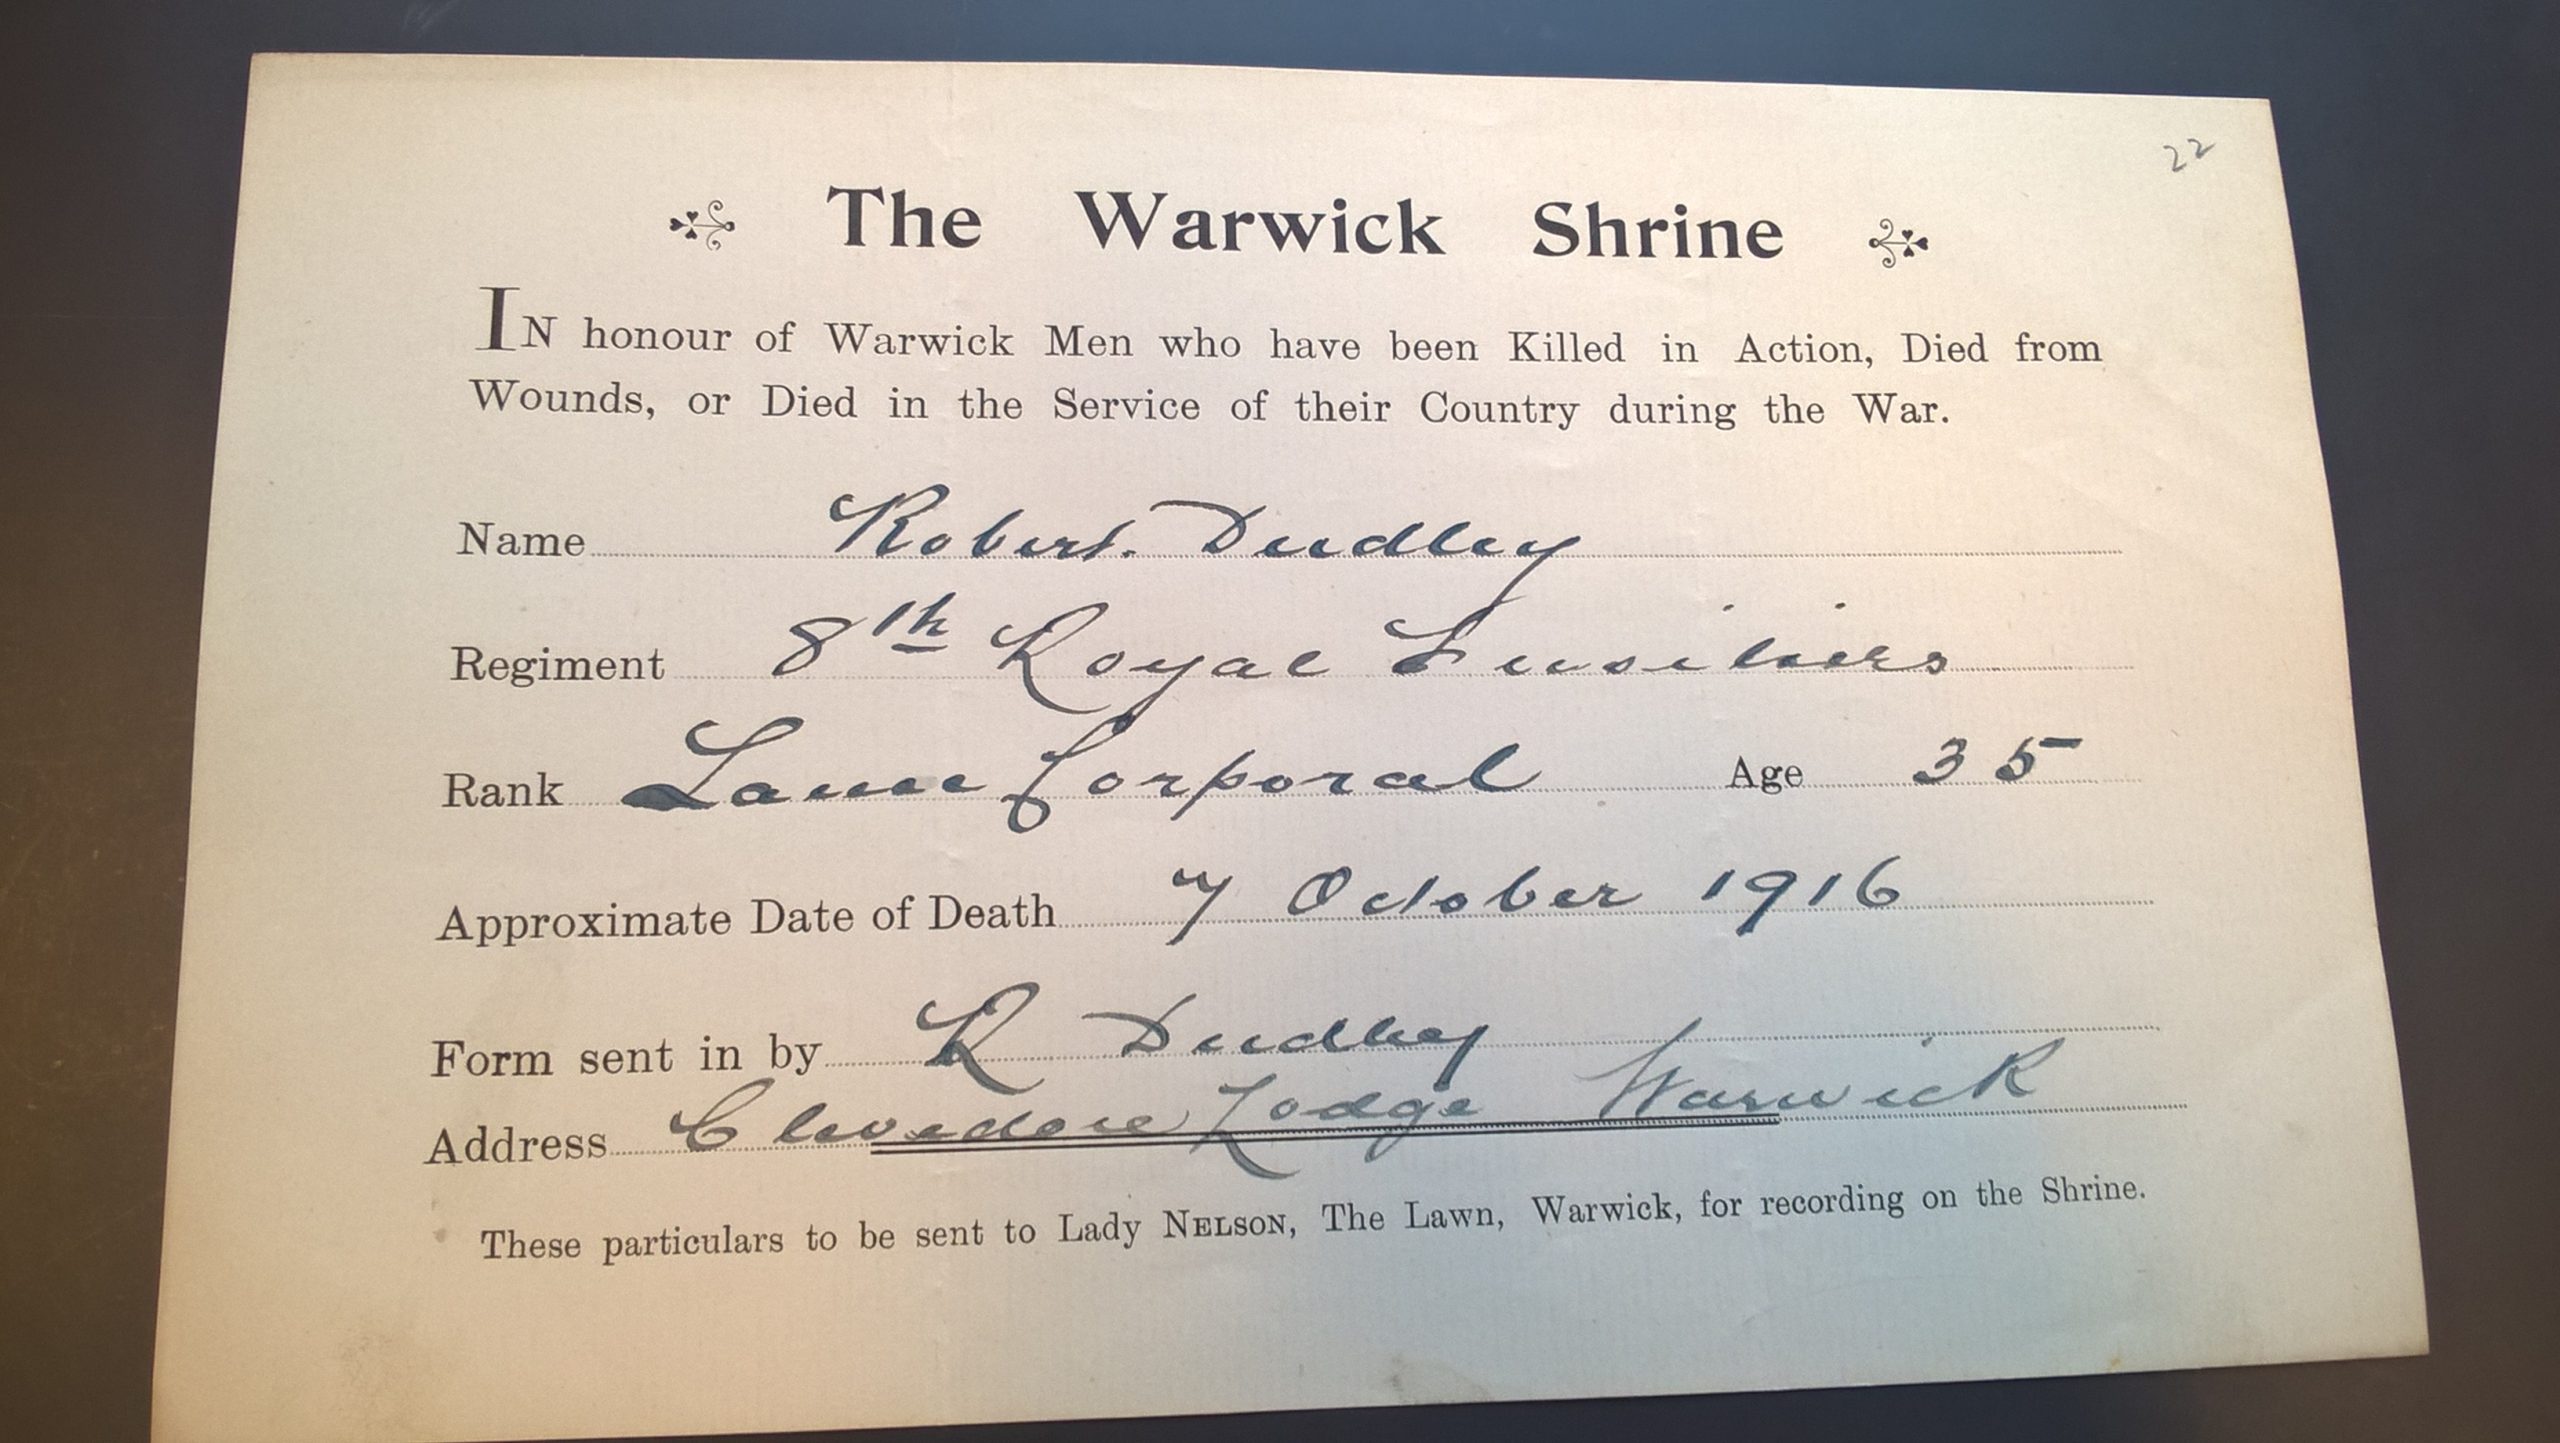 22
The Warwick Shrine
IN honour of Warwick Men who have been Killed in Action, Died from
Wounds, or Died in the Service of their Country during the War.
Name Robert. Dudley
Regiment 8th Royal Fusiliers
Rank Lance Corporal Age 35
Approximate Date of Death 7 October 1916
Form sent in by R Dudley
Address Clevedore Lodge Warwick
These particulars to be sent to Lady NELSON, The Lawn, Warwick, for recording on the Shrine.